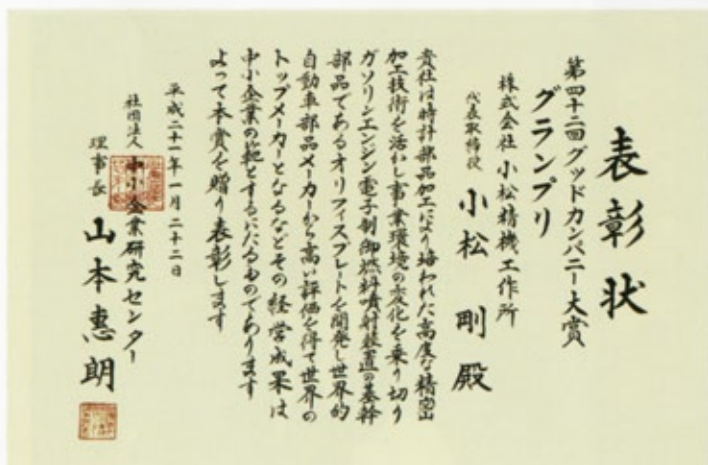 表彰状
第四十二回グッドカンパニー大賞
グランプリ
株式会社 小松精機工作所
代表取締役 小松 剛 殿
貴社は時計部品加工により培われた高度な精密
加工技術を活かし事業環境の変化を乗り切り
ガソリンエンジン電子制御燃料噴射装置の基幹
部品であるオリフィスプレートを開発し世界的
自動車部品メーカーから高い評価を得て世界の
トップメーカーとなるなどその経営成果は
中小企業の範とするにたるものであります
よって本賞を贈り表彰します
平成二十一年一月二十二日
社団法人 中小企業研究センター
理事長 山本惠朗